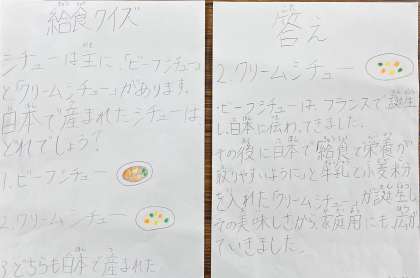 給食クイズ
シチューは主に、「ビーフシチュー」
と「クリームシチュー」があります。
日本で産まれたシチューは
どれでしょう?
1.ビーフシチュー
2.クリームシチュー
3.どちらも日本で産まれた
答え
2.クリームシチュー
・ビーフシチューは、フランスで誕生
し、日本に伝わってきました。
その後に日本で給食で栄養が
取りやすいようにと牛乳と小麦粉
を入れた「クリームシチュー」が誕生し、
その美味しさから、家庭用にも広がっ
ていきました。